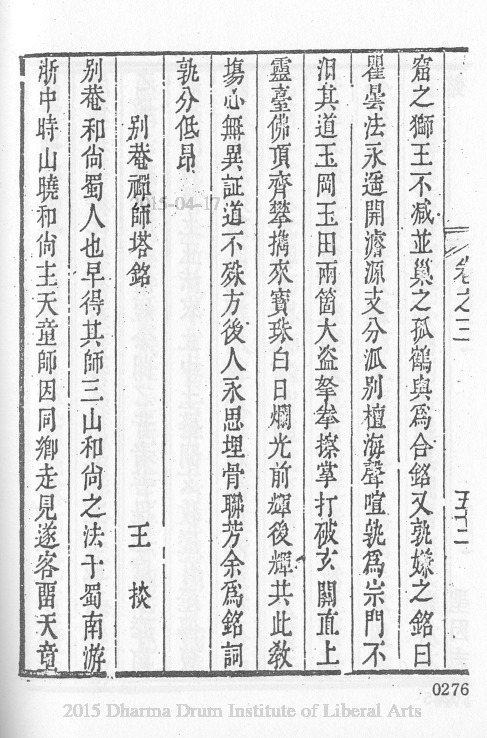 窟之獅王不减並巢之孤鶴與爲合銘又孰嫌之銘曰
瞿曇法永遥開濬源支分泒别檀海聲喧孰爲宗門不
汨其道玉岡玉田兩箇大盗拏拳擦掌打破玄關直上
靈臺佛頂齊攀攜來寶珠白日爛光前輝後輝共此敎
塲心無異証道不殊方後人永思埋骨聯芳余爲銘詞
孰分低昂
别菴禪師塔銘
王掞
别菴和尙蜀人也早得其師三山和尙之法于蜀南游
浙中時山曉和尙主天童師因同鄉走見遂客畱天童
卷之二
五十二
2015-04-17
0276
2015 Dharma Drum Institute of Liberal Arts